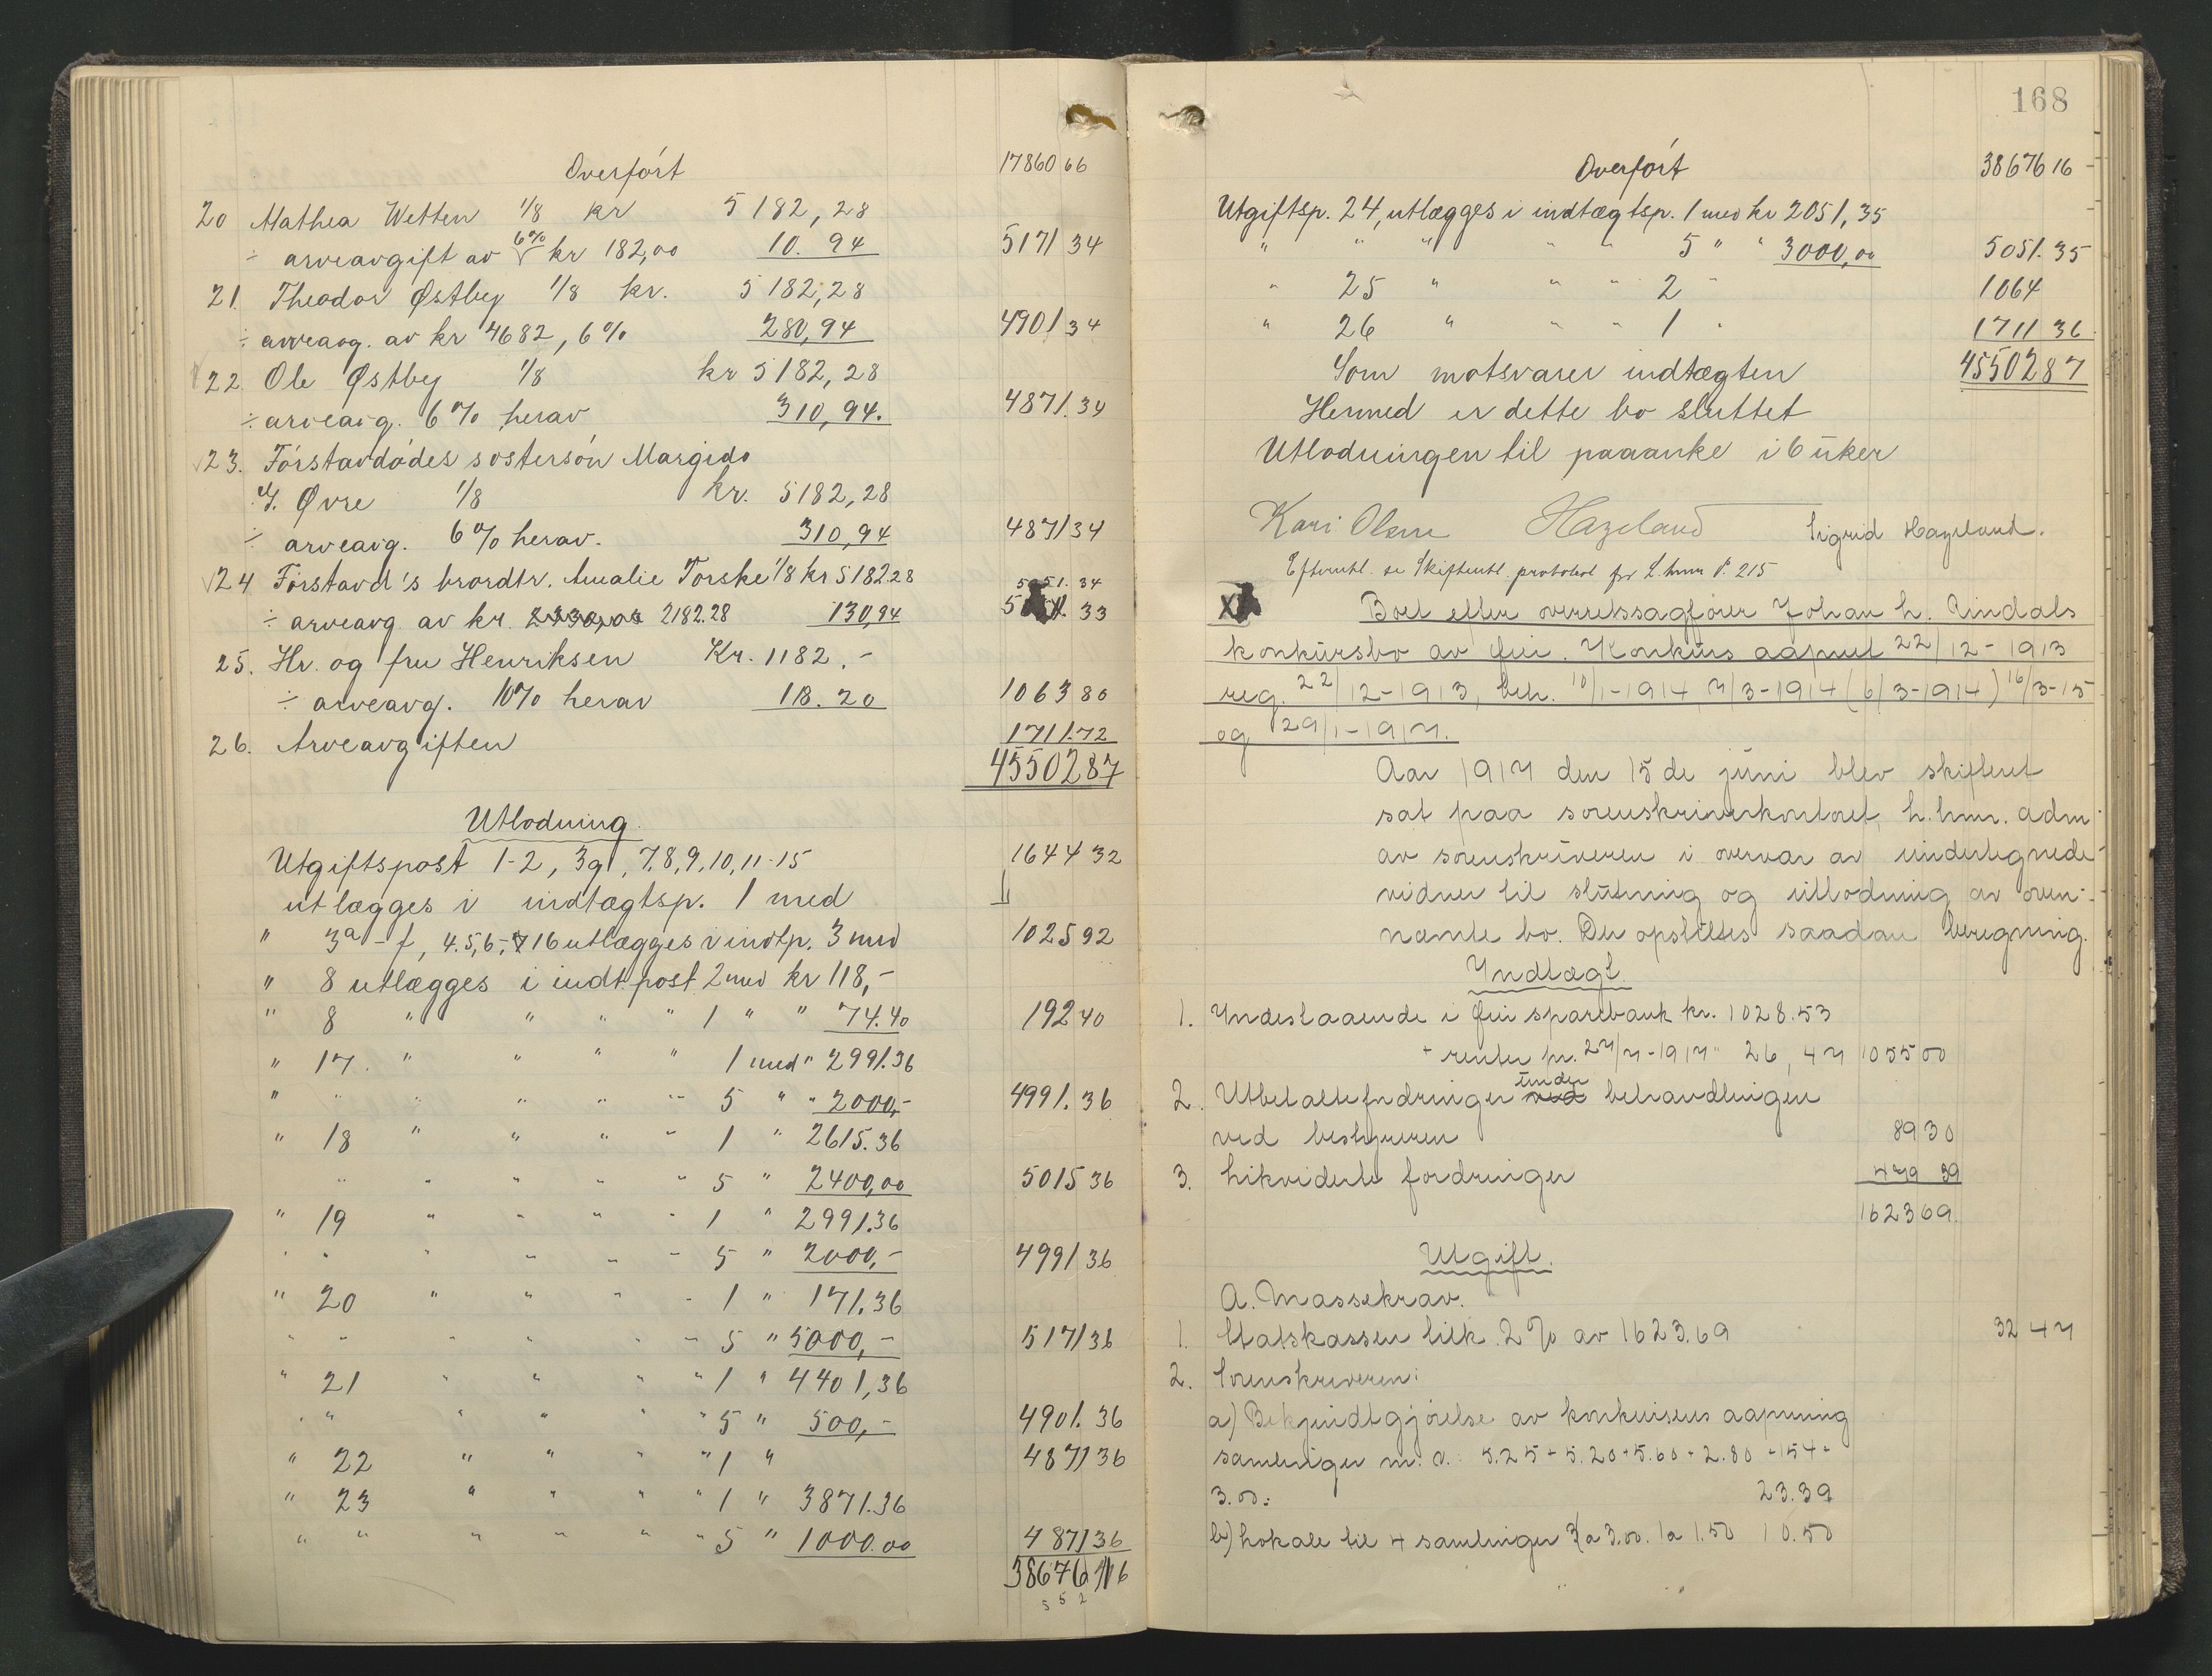 Overført 17860 66
20 Mathea Wetten 1/8 kr 5182,28
÷ arveavgift av 6% kr 182,00 10.94 5171 34
21. Theodor Østby 1/8 kr. 5182,28
÷ arveavg. av kr 4682, 6% 280,94 4901 34
22. Ole Østby 1/8 kr 5182,28
÷ arveavg. 6% herav 310,94. 4871.34
23. Førstavdødes søstersøn Margido
J. Øvre 1/8 kr. 5182,28
÷ arveavg. 6% herav. 310,94 4871 34
24 Førstavd's brordtr. Amalie Torske 1/8 kr 5182.28 5051.34
÷ arveavg av kr. 2182.28 130,94 33
25. Hr. og fru Henriksen Kr. 1182.-
÷ arveavg. 10% herav 118.20 1063 80
26. Arveavgiften 1711.72
45502 87
Utlodning
Utgiftspost 1-2, 3g, 7,8,9,10,11-15 1644 32
utlægges i indtægtsp. 1 med
" 3a-f, 4.5,6,-16 utlægges i indtp. 3 med 1025 92
" 8 utlægges i indt.post 2 med kr 118,-
" 8 " " " " 1 " " 74.40 192 40
" 17. " " " " 1 med " 2991.36
" " " " " " 5 " " 2000,- 4991.36
" 18 " " " " 1 " 2615.36
" " " " " 5 " 2400,00 5015 36
" 19 " " " " 1 " 2991.36
" " " " " " 5 " 2000,- 4991 36
" 20 " " " " 1 " 171.36
" " " " " " 5 " 5000,- 5171 36
" 21 " " " " 1 " 4401,36
" " " " " " 5 " 500,- 4901.36
" 22 " " " " 1 " 4871 36
" 23 " " " " 1 " 3871.36
" " " " " " 5 " 1000.00 4871 36
38676 16
5 5 2
168
Overført 38676 16
Utgiftsp. 24, utlægges i indtægtsp. 1 med kr 2051,35
" " " " " 5 " " 3000,00 5051.35
" 25 " " " 2 " 1064
" 26 " " " 1 " 1711 36
Som motsvarer indtægten 45502 87
Hermed er dette bo sluttet
Utlodningen til paaanke i 6 uker
Kari Olsen Hazeland Sigrid Hazeland.
Efterutl. se Skifteutl. protokol for L.hmr P. 215
Boet efter overretssagfører Johan L. Rindals
konkursbo av Frei. Konkurs aapnet 22/12-1913
reg. 22/12-1913, beh. 10/1-1914 7/3-1914 (6/3-1914) 16/3-15
og 29/1-1917.
Aar 1917 den 15de juni blev skifteret
sat paa sorenskriverkontoret, L.hmr. adm.
av sorenskriveren i overvær av undertegnede
vidner til slutning og utlodning av oven-
nævnte bo. Der opstilles saadan beregning.
Indtægt
1. Indestaaende i Frei sparebank kr. 1028.53
+ renter pr. 27/7-1917 " 26,47 1055 00
2. Utbetalte fordringer under behandlingen
ved bestyreren 89 30
3. Likviderte fordringer 479 39
1623 69.
Utgift.
A. Massekrav.
1. Statskassen tilk. 2% av 1623.69 32 47
2. Sorenskriveren:
a) Bekjendtgjørelse av konkursens aapning
samlinger m. v.: 5.25 + 5.20 + 5.60 + 2.80 + 154 +
3.00: 23.39
b) Lokale til 4 samlinger 3 a 3.00. 1 a 1.50 10.50